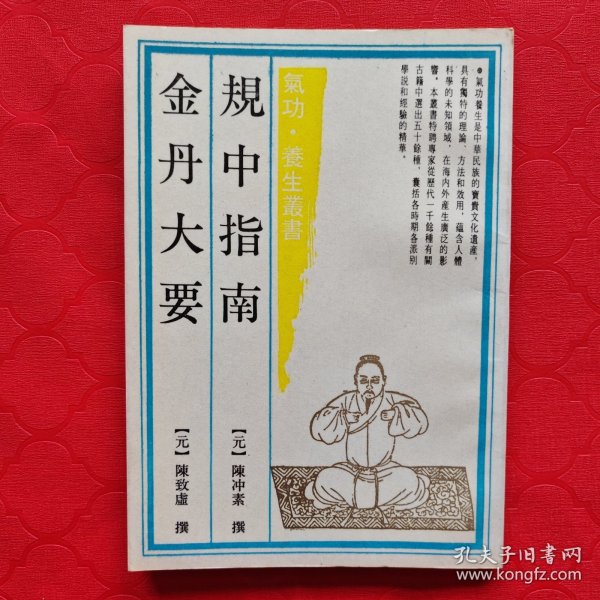 ●氣功養生是中華民族的寶貴文化遺產，
具有獨特的理論、方法和效用，蘊含人體
科學的未知領域，在海內外產生廣泛的影
響。本叢書特聘專家從歷代一千餘種有關
古籍中選出五十餘種，囊括各時期各派別
學說和經驗的精華。
氣功·養生叢書
規中指南
【元】陳冲素 撰
金丹大要
【元】陳致虛 撰
孔夫子旧书网
www.kongfz.com